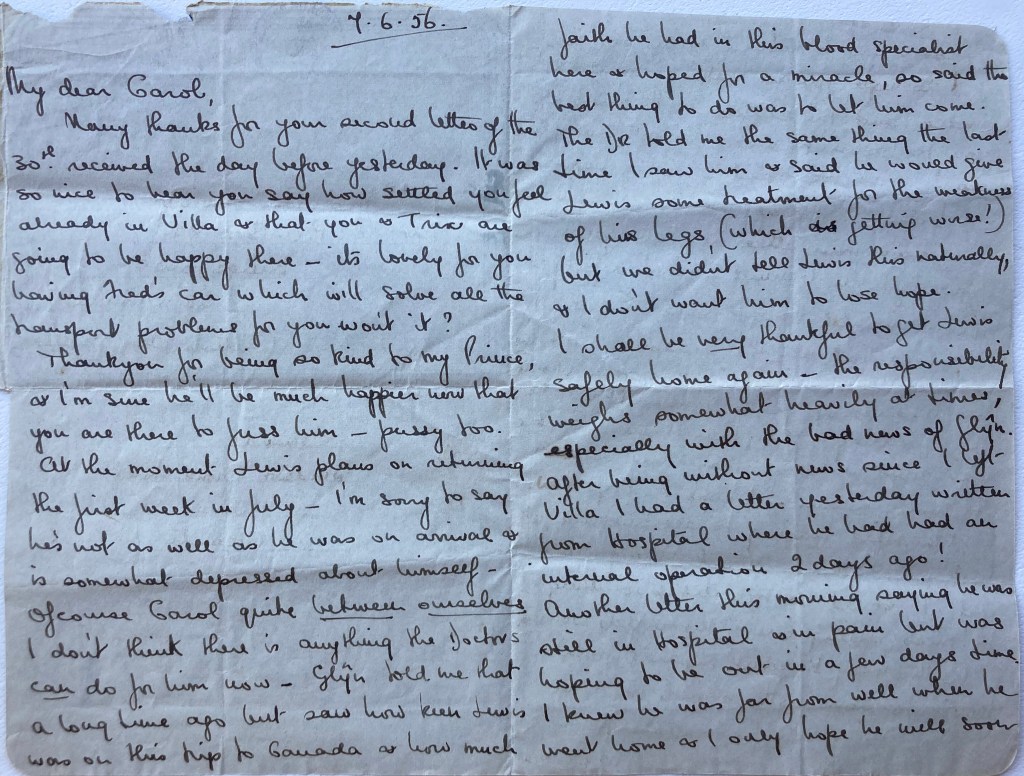 7.6.56.
My dear Carol,
Many thanks for your second letter of the
30th received the day before yesterday. It was
so nice to hear you say how settled you feel
already in Villa & that you & Trix are
going to be happy there – its lovely for you
having Fred's car which will solve all the
transport problems for you won't it?
Thankyou for being so kind to my Prince,
& I'm sure he'll be much happier now that
you are there to fuss him – pussy too.
At the moment Lewis plans on returning
the first week in July – I'm sorry to say
he's not as well as he was on arrival &
is somewhat depressed about himself –
Ofcourse Carol quite between ourselves
I don't think there is anything the Doctors
can do for him now – Glŷn told me that
a long time ago but saw how keen Lewis
was on this trip to Canada & how much
faith he had in this blood specialist
here & hoped for a miracle, so said the
best thing to do was to let him come.
The Dr told me the same thing the last
time I saw him & said he would give
Lewis some treatment for the weakness
of his legs, (which is getting worse!)
but we didn't tell Lewis this naturally,
& I don't want him to lose hope.
I shall be very thankful to get Lewis
safely home again – the responsibility
weighs somewhat heavily at times,
especially with the bad news of Glŷn.
after being without news since I left
Villa I had a letter yesterday written
from Hospital where he had had an
internal operation 2 days ago!
Another letter this morning saying he was
still in Hospital & in pain but was
hoping to be out in a few days time.
I knew he was far from well when he
went home & I only hope he will soon